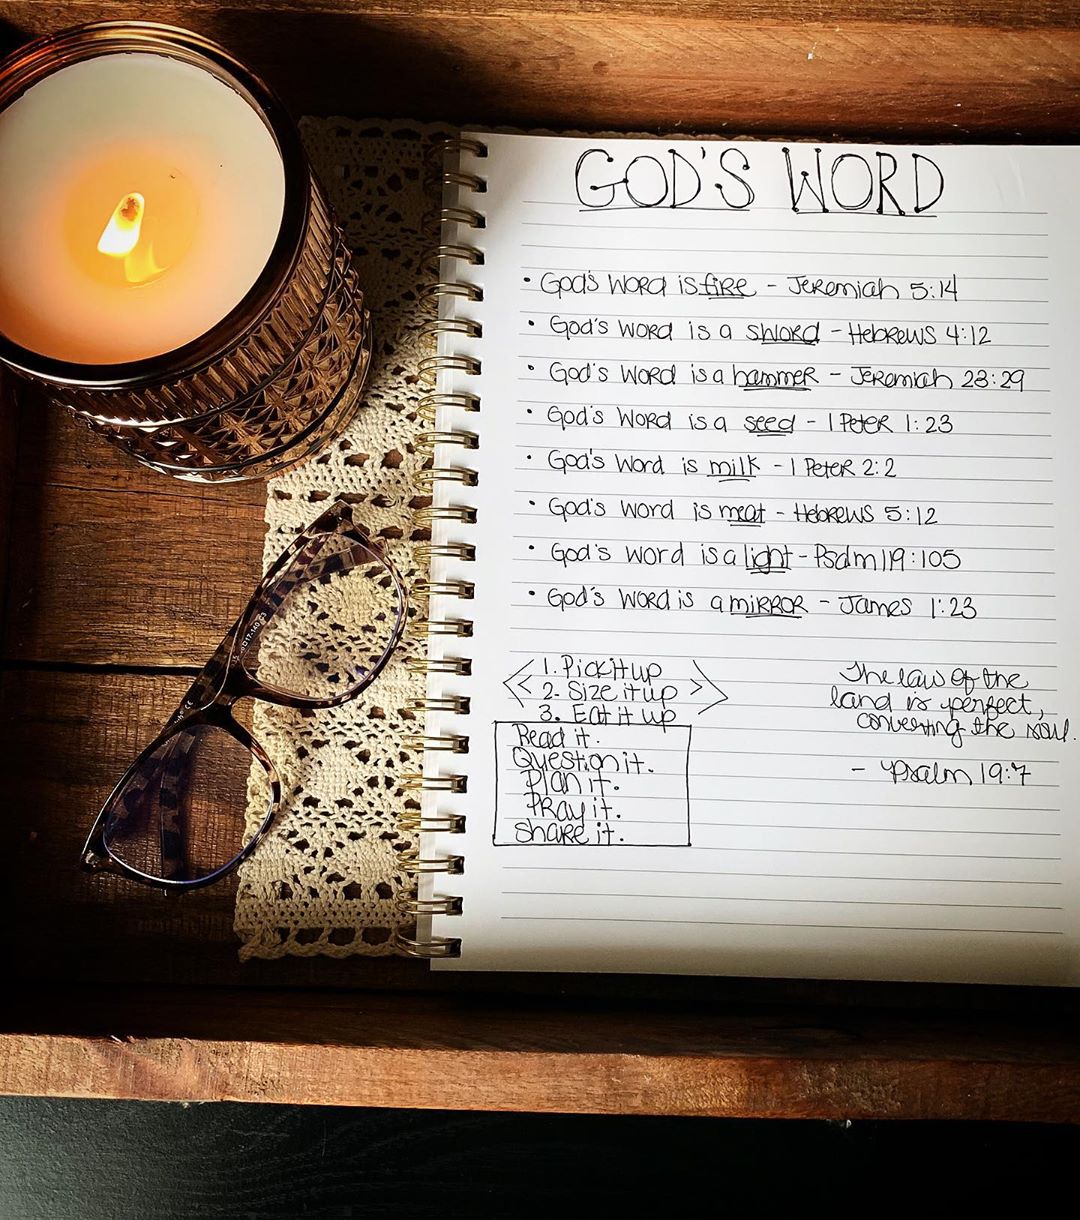 GOD'S WORD
• God's Word is fire - Jeremiah 5:14
• God's Word is a sword - Hebrews 4:12
• God's Word is a hammer - Jeremiah 23:29
• God's Word is a seed - 1 Peter 1:23
• God's Word is milk - 1 Peter 2:2
• God's Word is meat - Hebrews 5:12
• God's Word is a light - Psalm 119:105
• God's Word is a mirror - James 1:23
1. Pick it up
2. Size it up
3. Eat it up
Read it.
Question it.
Plan it.
Pray it.
Share it.
The law of the
land is perfect,
converting the soul.
- Psalm 19:7